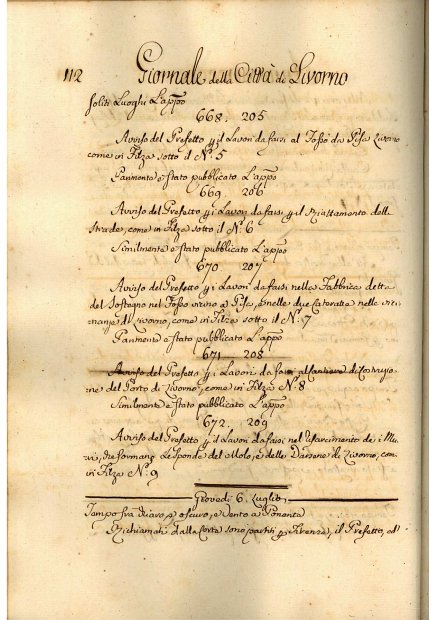 112 Giornale della Città di Livorno
soliti Luoghi L'appo
668. 205
Avviso del Prefetto p i Lavori da farsi al Fosso da Pisa Livorno
come in Filza sotto il N.º 5
Parimente è stato pubblicato L'appo
669 206
Avviso del Prefetto p i Lavori da farsi p il Riattamento delle
Strade, come in Filza sotto il N.º 6
Similmente è stato pubblicato L'appo
670 207
Avviso del Prefetto p i Lavori da farsi nella Fabbrica detta
del Sostegno nel Fosso vicino a Pisa, e nelle due Cateratte nelle vici-
nanze di Livorno, come in Filza sotto il N.º 7
Parimente è stato pubblicato L'appo
671 208
Avviso del Prefetto p i Lavori da farsi al Cantiere di Costruzio-
ne del Porto di Livorno, come in Filza N.º 8
Similmente è stato pubblicato L'appo
672 209
Avviso del Prefetto p i Lavori da farsi nel Risarcimento de i Mu-
ri, che formano Le Sponde del Molo, e delle Darsene di Livorno, come
in Filza N.º 9
Giovedi 6. Luglio
Tempo frà chiaro, e oscuro, e Vento a Ponente
Richiamati dalla Corte sono partiti p Firenze, il Prefetto, ed